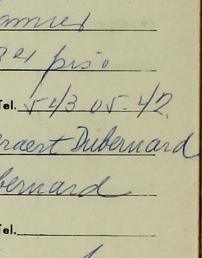 3er piso
Tel. 543 05-42
eraert Dubernard
bernard
Tel.